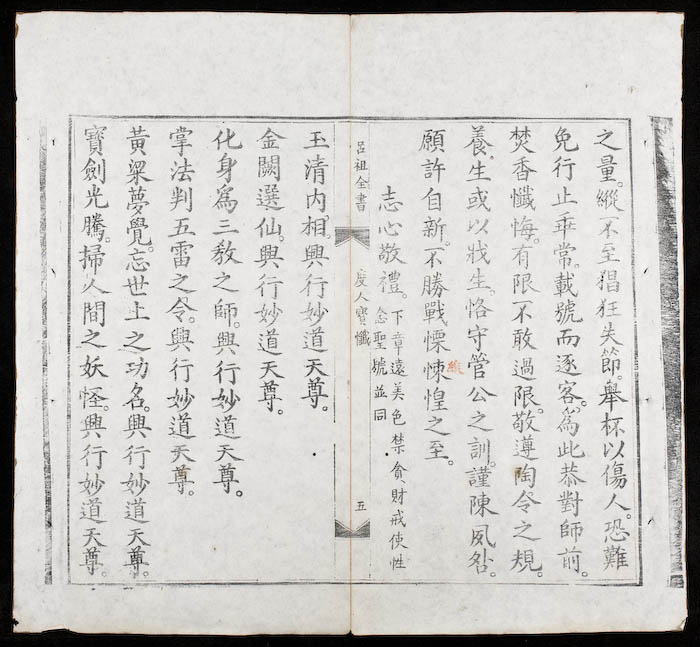 之量。縱不至猖狂失節舉杯以傷人。恐難
免行止乖常。載號而逐客。爲此恭對師前。
焚香懺悔。有限不敢過限。敬遵陶令之規。
養生或以戕生。恪守管公之訓。謹陳夙咎。
願許自新。不勝戰慄悚惶之至。
志心敬禮。下章遠美色禁貪財戒使性
念聖號並同
呂祖全書
度人寶懺
五
玉清內相。興行妙道天尊。
金闕選仙。興行妙道天尊。
化身爲三教之師。興行妙道天尊。
掌法判五雷之令。興行妙道天尊。
黃粱夢覺。忘世上之功名。興行妙道天尊。
寶劍光騰。掃人間之妖怪。興行妙道天尊。